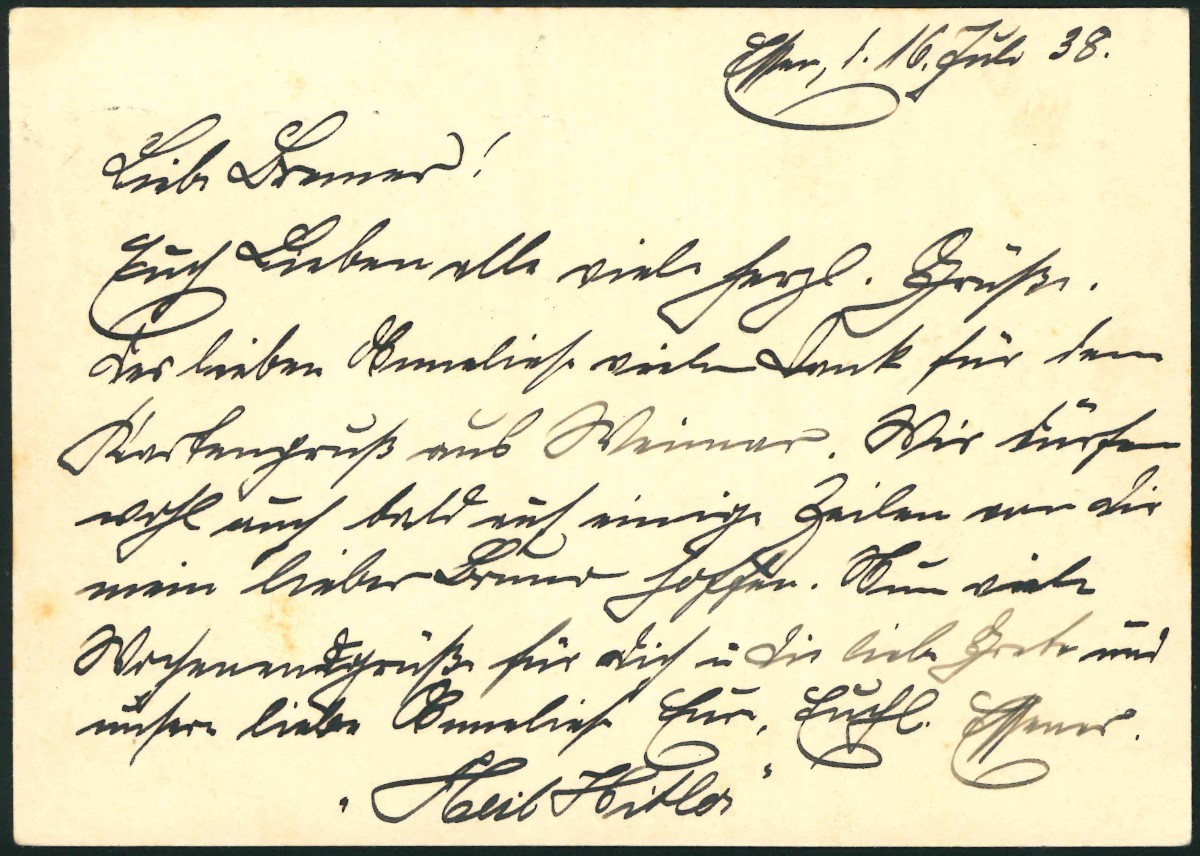 Essen, d. 16. Juli 38.
Liebe Bremer!
Euch Lieben alle viele herzl. Grüße.
Der lieben Anneliese vielen Dank für den
Kartengruß aus Weimar. Wir dürfen
wohl auch bald auf einige Zeilen von Dir
mein lieber Bruno hoffen. Nun viele
Wochenendgrüße für Dich u die liebe Grete und
unsere liebe Anneliese Eure, Essener.
"Heil Hitler"